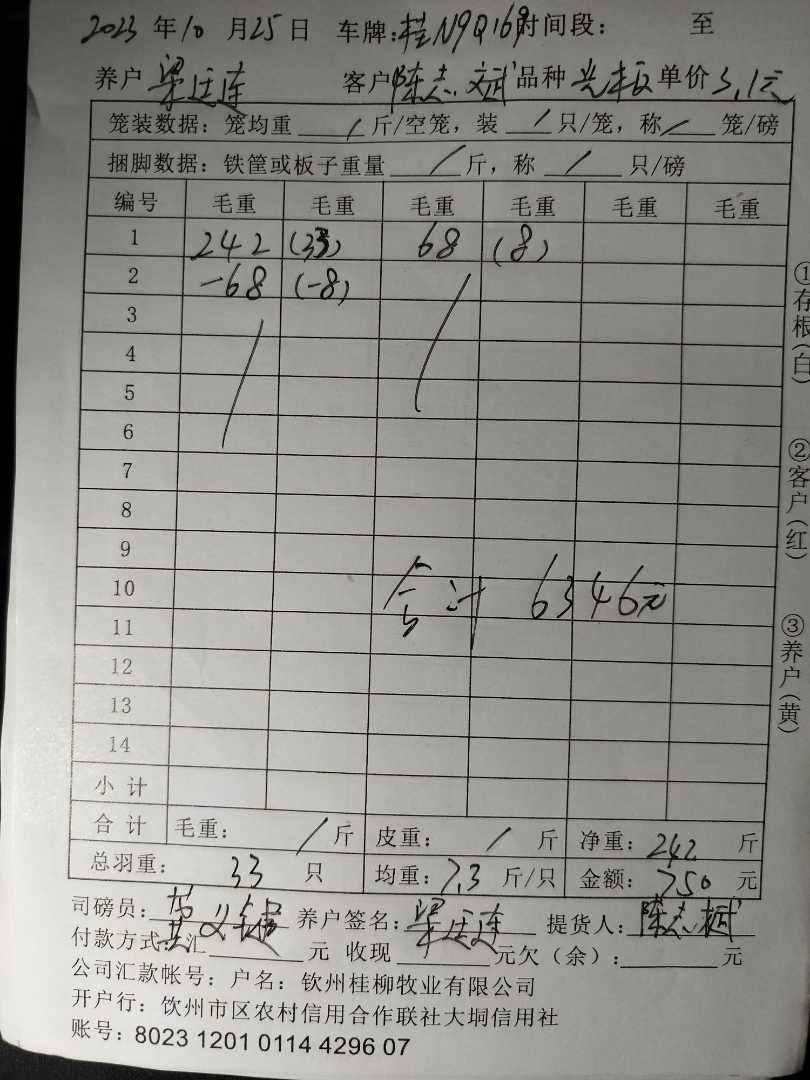 2023 年 10 月 25 日 车牌: 桂N9Q169 时间段: 至
养户 梁廷连 客户 陈志斌 品种 单价 3.1元
笼装数据: 笼均重 / 斤/空笼, 装 / 只/笼, 称 / 笼/磅
捆脚数据: 铁筐或板子重量 / 斤, 称 / 只/磅
编号 毛重 毛重 毛重 毛重 毛重 毛重
1 242 (33) 68 (8)
2 -68 (-8)
3
4
5
6
7
8
9
10 合计 6346元
11
12
13
14
小 计
合 计 毛重: / 斤 皮重: / 斤 净重: 242 斤
总羽重: 33 只 均重: 7.3 斤/只 金额: 750 元
司磅员: 养户签名: 梁廷连 提货人: 陈志斌
付款方式: 汇 元 收现 元欠(余): 元
公司汇款帐号: 户名: 钦州桂柳牧业有限公司
开户行: 饮州市区农村信用合作联社大垌信用社
账号: 8023 1201 0114 4296 07
①存根(白)
②客户(红)
③养户(黄)